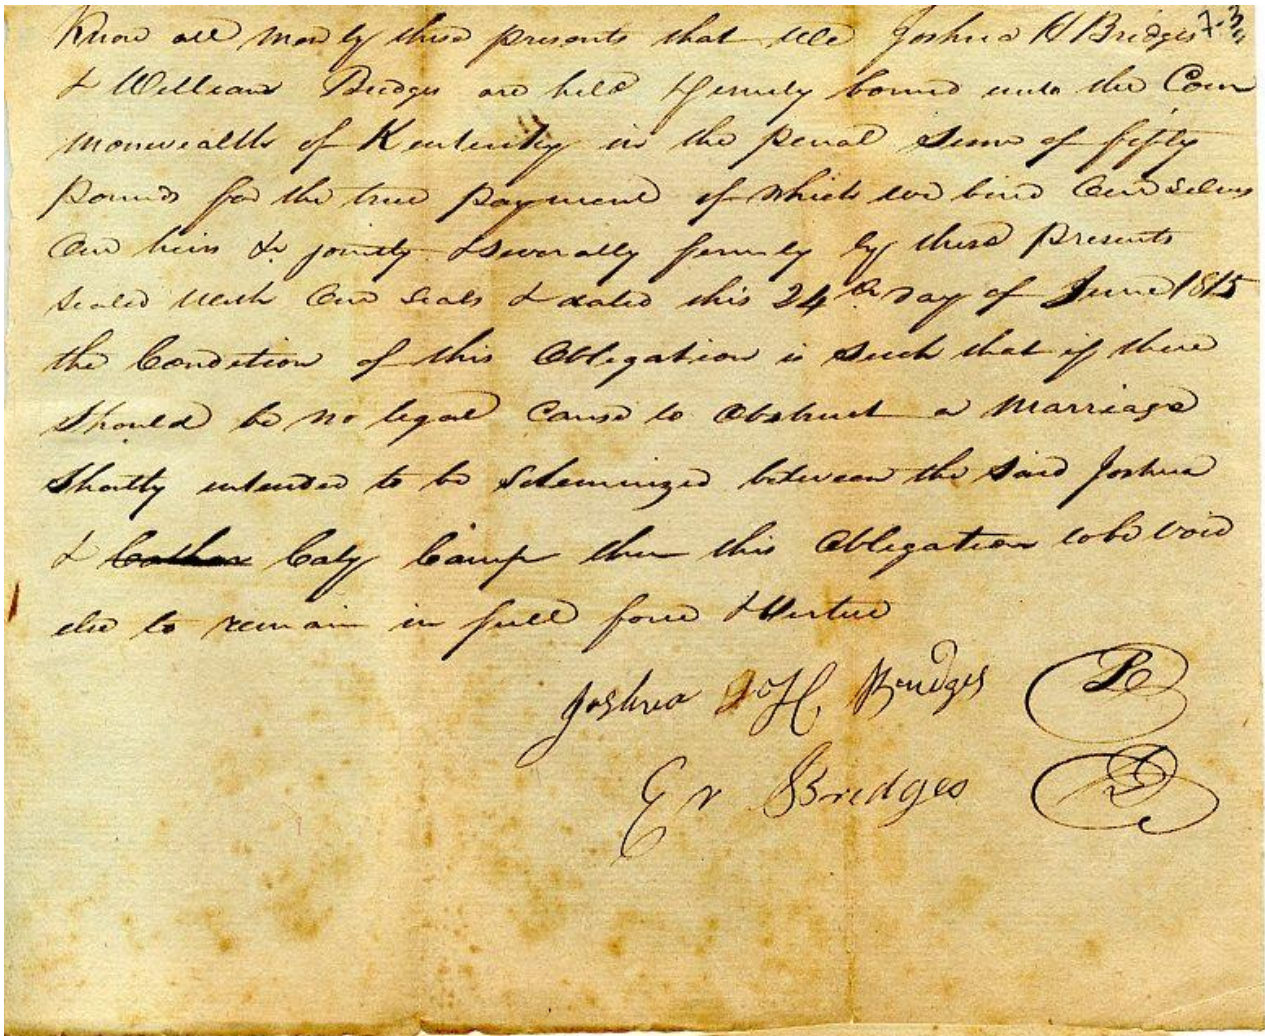 Know all men by these presents that We Joshua H Bridges
& William Bridges are held & firmly bound unto the Com
monwealth of Kentucky in the penal sum of fifty
pounds for the true payment of which we bind Our selves
Our heirs &c jointly & severally firmly by these Presents
sealed with Our seals & dated this 24th day of June 1815
the Condition of this Obligation is Such that if there
should be no legal Cause to Obstruct a Marriage
shortly intended to be Solemnized between the said Joshua
& Caty Camp then this Obligation to be void
else to remain in full force & Virtue
Joshua H Bridges
Bridges